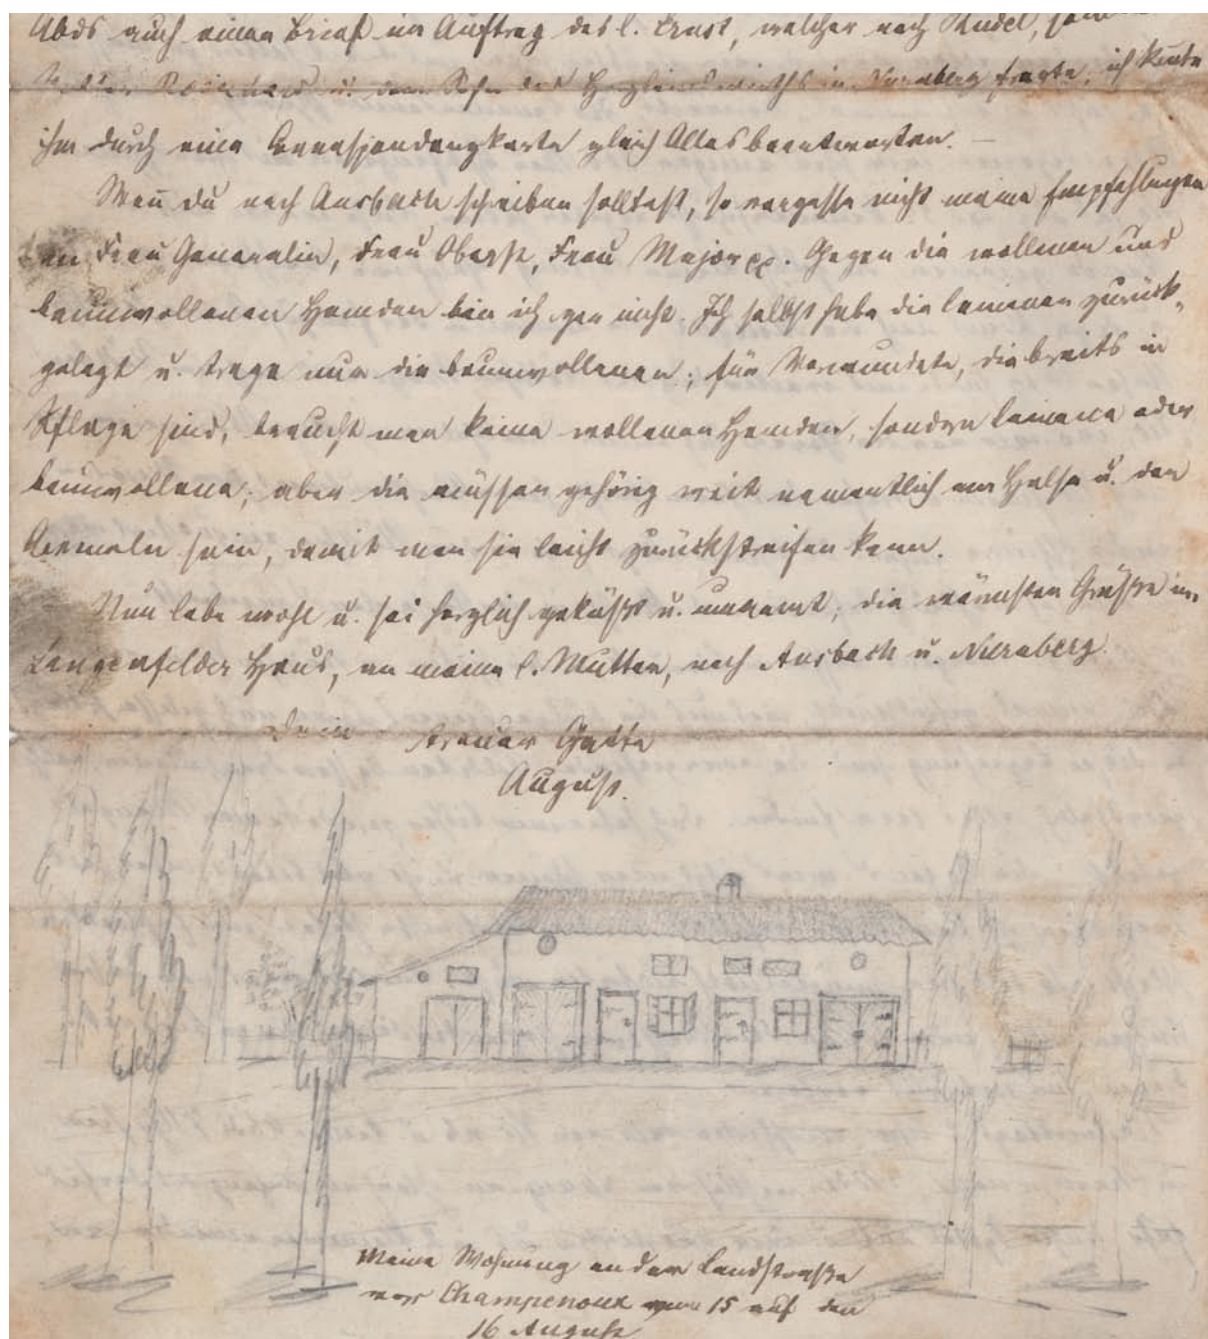 Abds auch einen Brief im Auftrag des l. Ernst, welcher nach Rudel,
u. dem Sohn des in Nürnberg fragte, ich konnte
ihm durch eine Correspondenzkarte gleich Alles beantworten. —
Wen̄ du nach Ansbach schreiben solltest, so vergesse nicht meine Empfehlungen
an Frau Generalin, Frau Oberst, Frau Major pp. Gegen die wollenen und
baumwollenen Hemden bin ich gar nicht. Ich selbst habe die leinenen zurück-
gelegt u. trage nur die baumwollenen; für Verwundete, die breits in
Pflege sind, braucht man keine wollenen Hemden, sondern leinene oder
baumwollene; aber die müssen gehörig weit namentlich am Halse u. den
Aermeln sein, damit man sie leicht zurückstreifen kann.
Nun lebe wohl u. sei herzlich geküßt u. umarmt, die wärmsten Grüße ins
Langenfelder Haus, an meine l. Mutter, nach Ansbach u. Nürnberg.
Dein treuer Gatte
August.
Meine Wohnung an der Landstraße
vor Champenoux vom 15 auf den
16 August